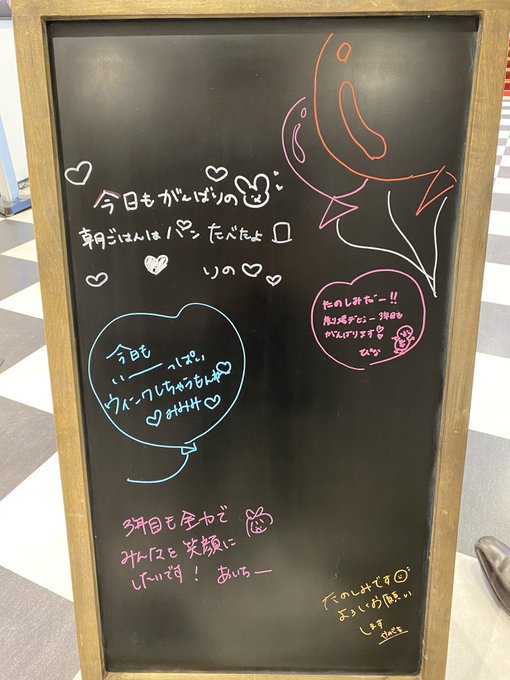 今日もがんばりの
朝ごはんは パン たべたよ
りの
たのしみだー!!
劇場デビュー3年目も
がんばります
ひな
今日も
い——っぱい
ウィンクしちゃうもん
みみみ
3年目も全力で
みんなを笑顔に
したいです! あいちー
たのしみです
よろしくお願い
します